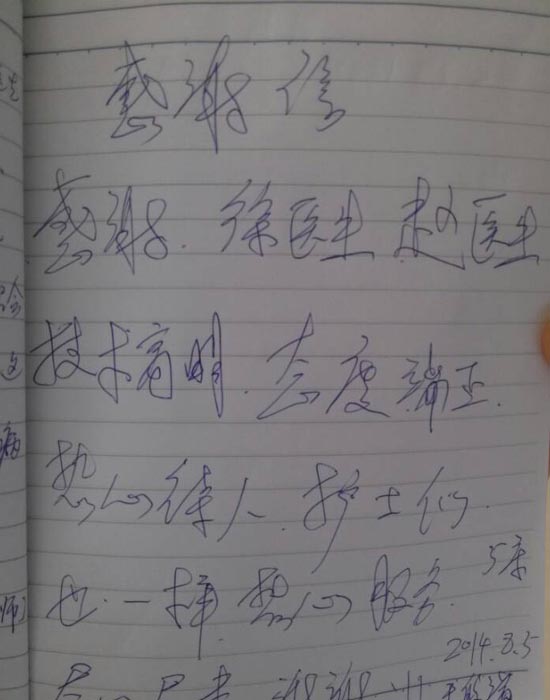 感谢信
感谢.徐医生 赵医生
技术高明.态度端正.
热心待人.护士们.
也一样热心服务.
5床
2014.8.5